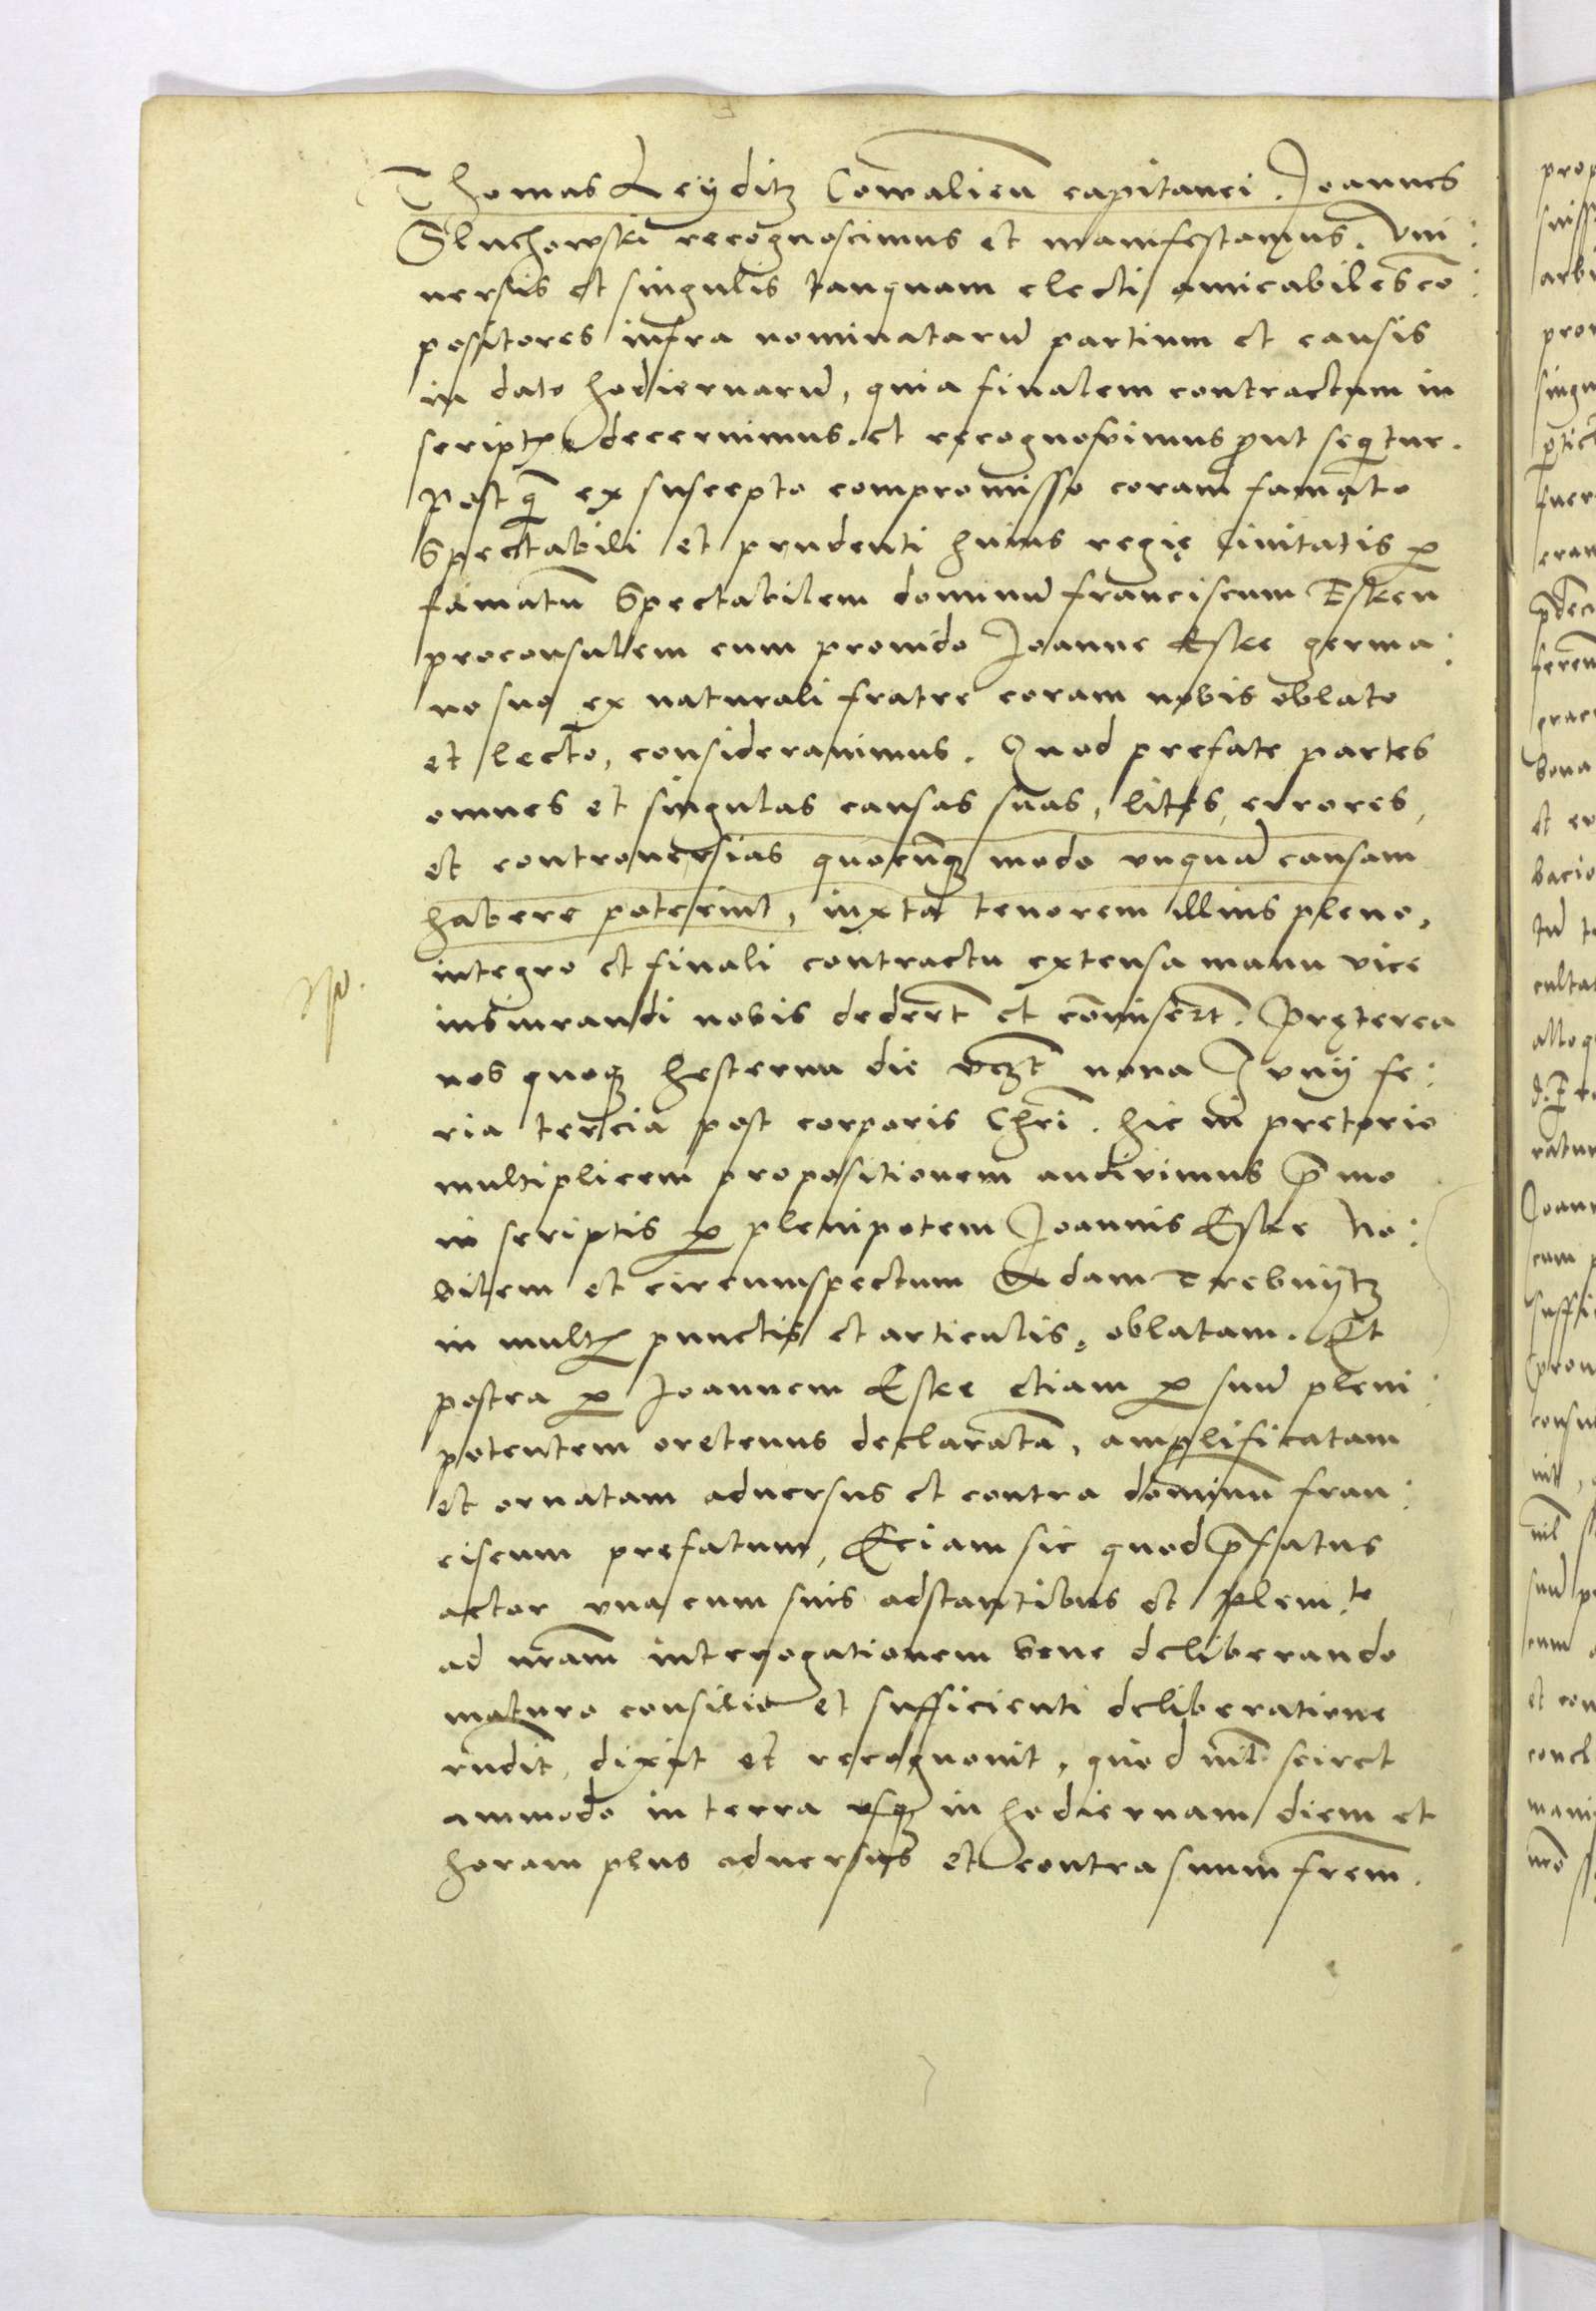 Thomas Leÿditz Cowalieñ capitanei. Joannes
Sluchowski recognoscimus et manifestamus. Vni:
uersis et singulis tanquam electi amicabiles cō:
positores infra nominatarū partium et causis
in dato hodiernarū, quia finalem contractum in
scriptꝭ decernimus. et recognoscimus ꝓut seqͥtur.
Post qͣ̄ ex suscepto compromisso coram famato
Spectabili et prudenti huius regię ciuitatis ꝑ
famatū Spectabilem dominū franciscum Eskeñ
proconsulem cum prouido Joanne Eske germa:
no suo ex naturali fratre coram nobis oblato
et lecto, considerauimus. Quod prefate partes
omnes et singulas causas suas, lites, errores,
et controuersias quocūqꝫ modo vnquā causam
habere poterint, iuxta tenorem illius pleno,
integro et finali contractu extensa manu vice
iusiurandi nobis dedert̄ et cōmisert̄. Pręterea
nos quoqꝫ hesterna die vꝫt nona Junÿ fe:
ria tercia post corporis Chri̅. hic in pretorio
multiplicem propositionem audiuimus p̄mo
in scriptis ꝑ plenipotem Joannis Eske No:
bilem et circumspectum Adam Trebnÿtz
in multꝭ punctis et articulis, oblatam. Et
postea ꝑ Joannem Eske etiam ꝑ suū pleni:
potentem oretenus declaratā, amplificatam
et ornatam aduersus et contra dominū fran:
ciscum prefatum, Eciam sic quod p̄fatus
actor vna cum suis adstantibus et pleni:te
ad nr̄am interrogationem bene deliberando
maturo consilio et sufficienti deliberatione
rn̄dit, dixit et recognouit, quod nil̄ sciret
ammodo in terra vsqꝫ in hodiernam diem et
horam plus aduersus et contra suum frēm.